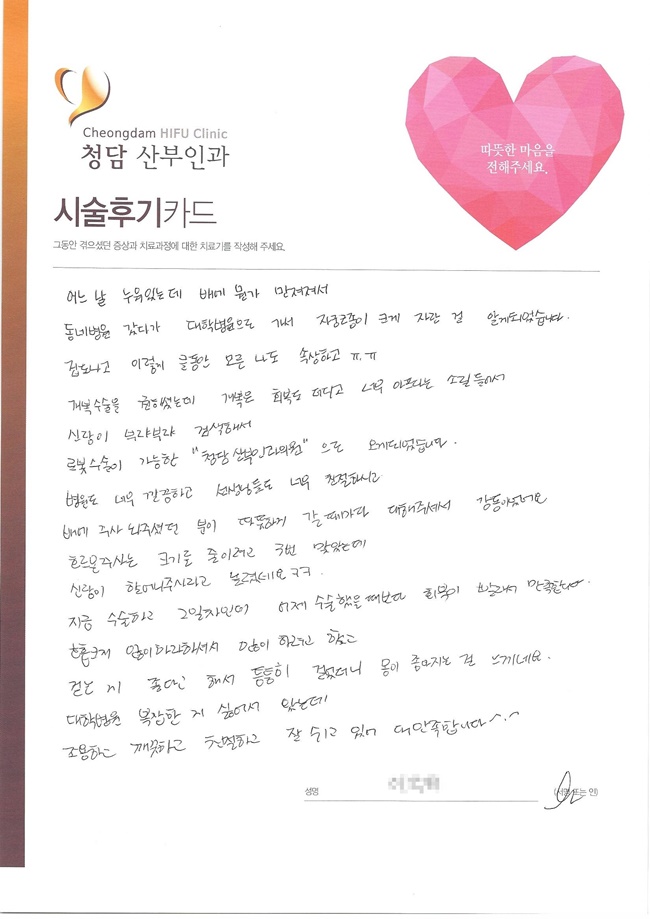 Cheongdam HIFU Clinic
청담 산부인과
따뜻한 마음을
전해주세요.
시술후기카드
그동안 겪으셨던 증상과 치료과정에 대한 치료기를 작성해 주세요.
어느 날 누워있는데 배에 뭔가 만져져서
동네병원 갔다가 대학병원으로 가서 자궁근종이 크게 자란 걸 알게되었습니다.
겁도나고 이렇게 클동안 모른 나도 속상하고 ㅠ.ㅠ
개복수술을 권하셨는데 개복은 회복도 더디고 너무 아프다는 소릴 들어서
신랑이 부랴부랴 검색해서
로봇수술이 가능한 "청담산부인과의원" 으로 오게되었습니다.
병원도 너무 깔끔하고 선생님들도 너무 친절하시고
배에 주사 놔주셨던 분이 따뜻하게 갈때마다 대해주셔서 감동이었네요
호르몬주사는 크기를 줄이려고 3번 맞았는데
신랑이 할머니주사라고 놀렸네요 ㅋㅋ.
지금 수술하고 2일차인데 어제 수술했을때보다 회복이 빨라서 만족합니다.
걷는 게 좋다고 해서 틈틈히 걸었더니 몸이 좋아지는 걸 느끼네요.
대학병원 복잡한 게 싫어서 있는데
조용하고 깨끗하고 친절하고 잘 쉬고 있어 대만족합니다^.^
성명
(서명 또는 인)